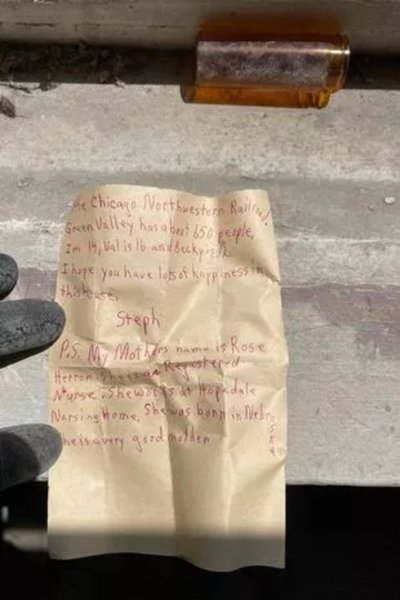 The Chicago Northwestern Railroad.
Green Valley has about 650 people,
Im 14, Val is 16 and Becky is 12.
I hope you have lots of happiness in
this house,
Steph
P.S. My Mothers name is Rose
Herron. She is a Regestered
Nurse. She works at Hopedale
Nursing Home. She was born in Nebraska
She is a very good mother